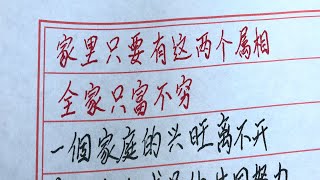 家里只要有这两个属相
全家只富不穷
一個家庭的兴旺离不开